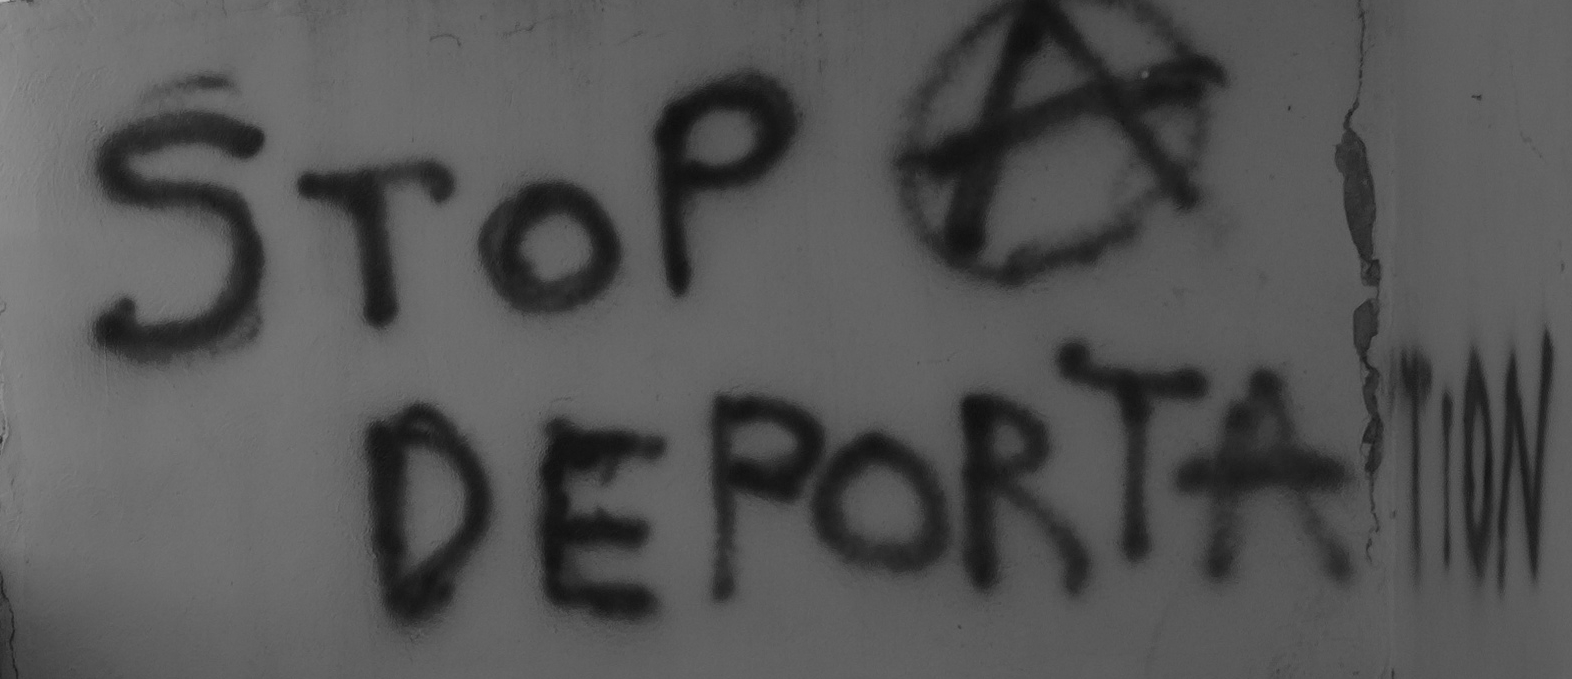 STOP Ⓐ
DEPORTATION